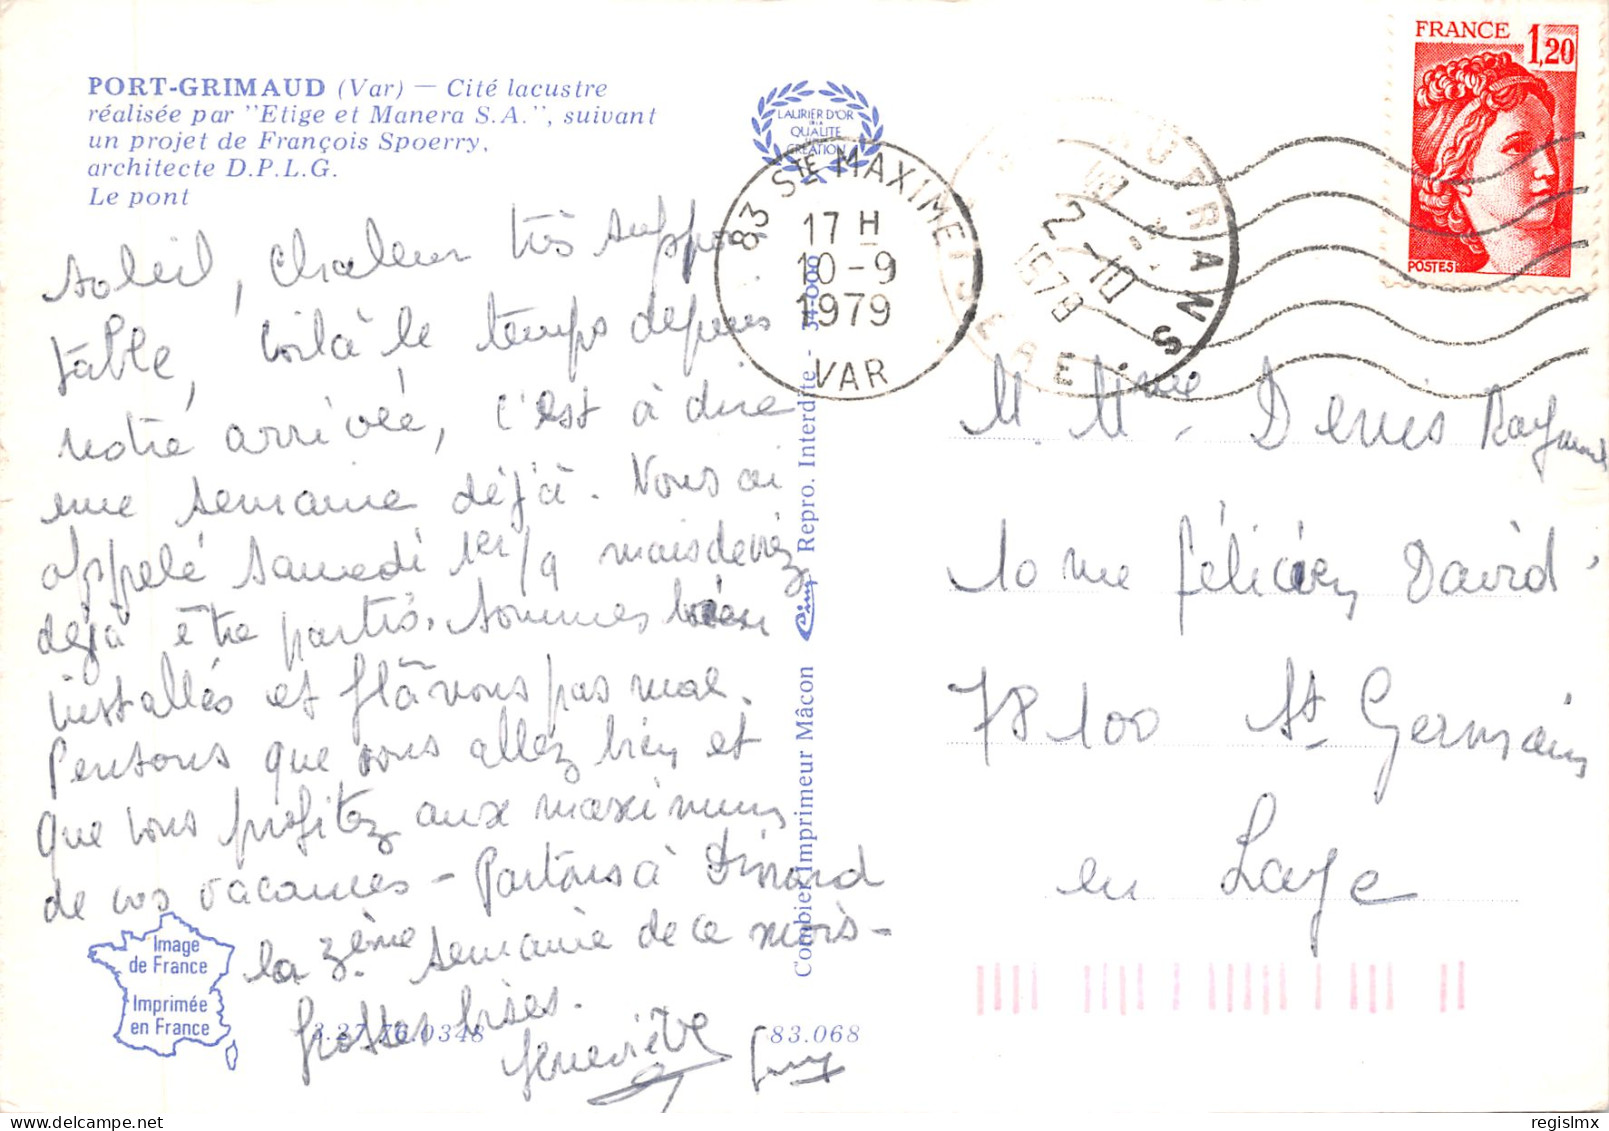 PORT-GRIMAUD (Var) — Cité lacustre
réalisée par "Etige et Manera S.A.", suivant
un projet de François Spoerry,
architecte D.P.L.G.
Le pont
LAURIER D'OR
QUALITE
CREATION
83 STE MAXIME
17 H
10-9
1979
VAR
AUTRANS
2-10
1979
ISERE
FRANCE 1,20
POSTES
Soleil, chaleur très suppor
table, voilà le temps depuis
notre arrivée, c'est à dire
une semaine déjà. Vous ai
appelé Samedi 1er/9 mais deviez
déjà être partis. Sommes bien
installés et flânons pas mal.
Pensons que vous allez bien et
que vous profitez aux maximum
de vos vacances - Partons à Dinard
la 3ème semaine de ce mois-
Grosses bises.
Geneviève Guy
M. Mme Denis Raymond
10 rue Félicien David
78100 St Germain
en Laye
Combier Imprimeur Mâcon Cim Repro. Interdite - 34-000
Image
de France
Imprimée
en France
3.27.76.0348
83.068
delcampe.net
regislmx